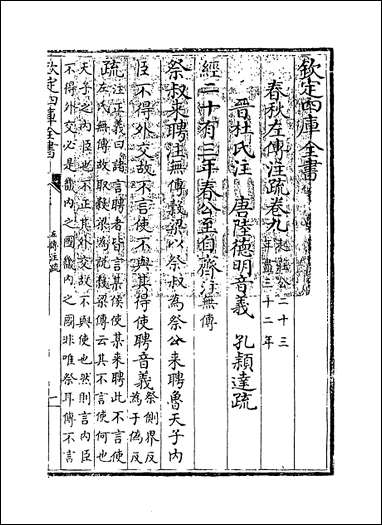 欽定四庫全書
春秋左傳注疏卷九起莊公二十三年盡三十二年
晉杜氏注 唐陸德明音義 孔穎達疏
經二十有三年春公至自齊注無傳
祭叔來聘注無傳穀梁以祭叔為祭公來聘魯天子内
臣不得外交故不言使不與其得使聘音義祭側界反為于偽反
疏注正義曰諸言聘者皆言某侯使某來聘此不言使
左氏無傳故取穀梁為説穀梁傳云其不言使何也
天子之内臣也不正其外交故不與使也然則言内臣
不得外交必是畿内之國畿内之國非唯祭耳傳不言
欽定四庫全書
左傳注疏
一